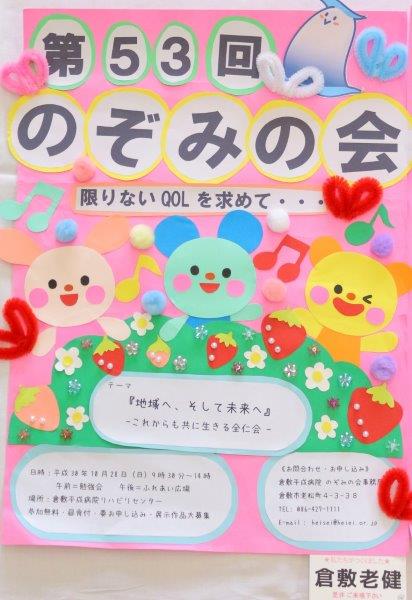 第53回
のぞみの会
限りないQOLを求めて・・・
テーマ
『地域へ、そして未来へ』
-これからも共に生きる全仁会-
日時：平成30年10月28日（日）9時30分〜14時
午前＝勉強会　午後＝ふれあい広場
場所：倉敷平成病院リハビリセンター
参加無料・昼食付・要お申し込み・展示作品大募集
《お問合わせ・お申し込み》
倉敷平成病院 のぞみの会事務局
倉敷市老松町4-3-38
TEL：086-427-1111
E-mail：heisei@heisei.or.jp
★私たちがつくりました★
倉敷老健
是非ご来場下さい